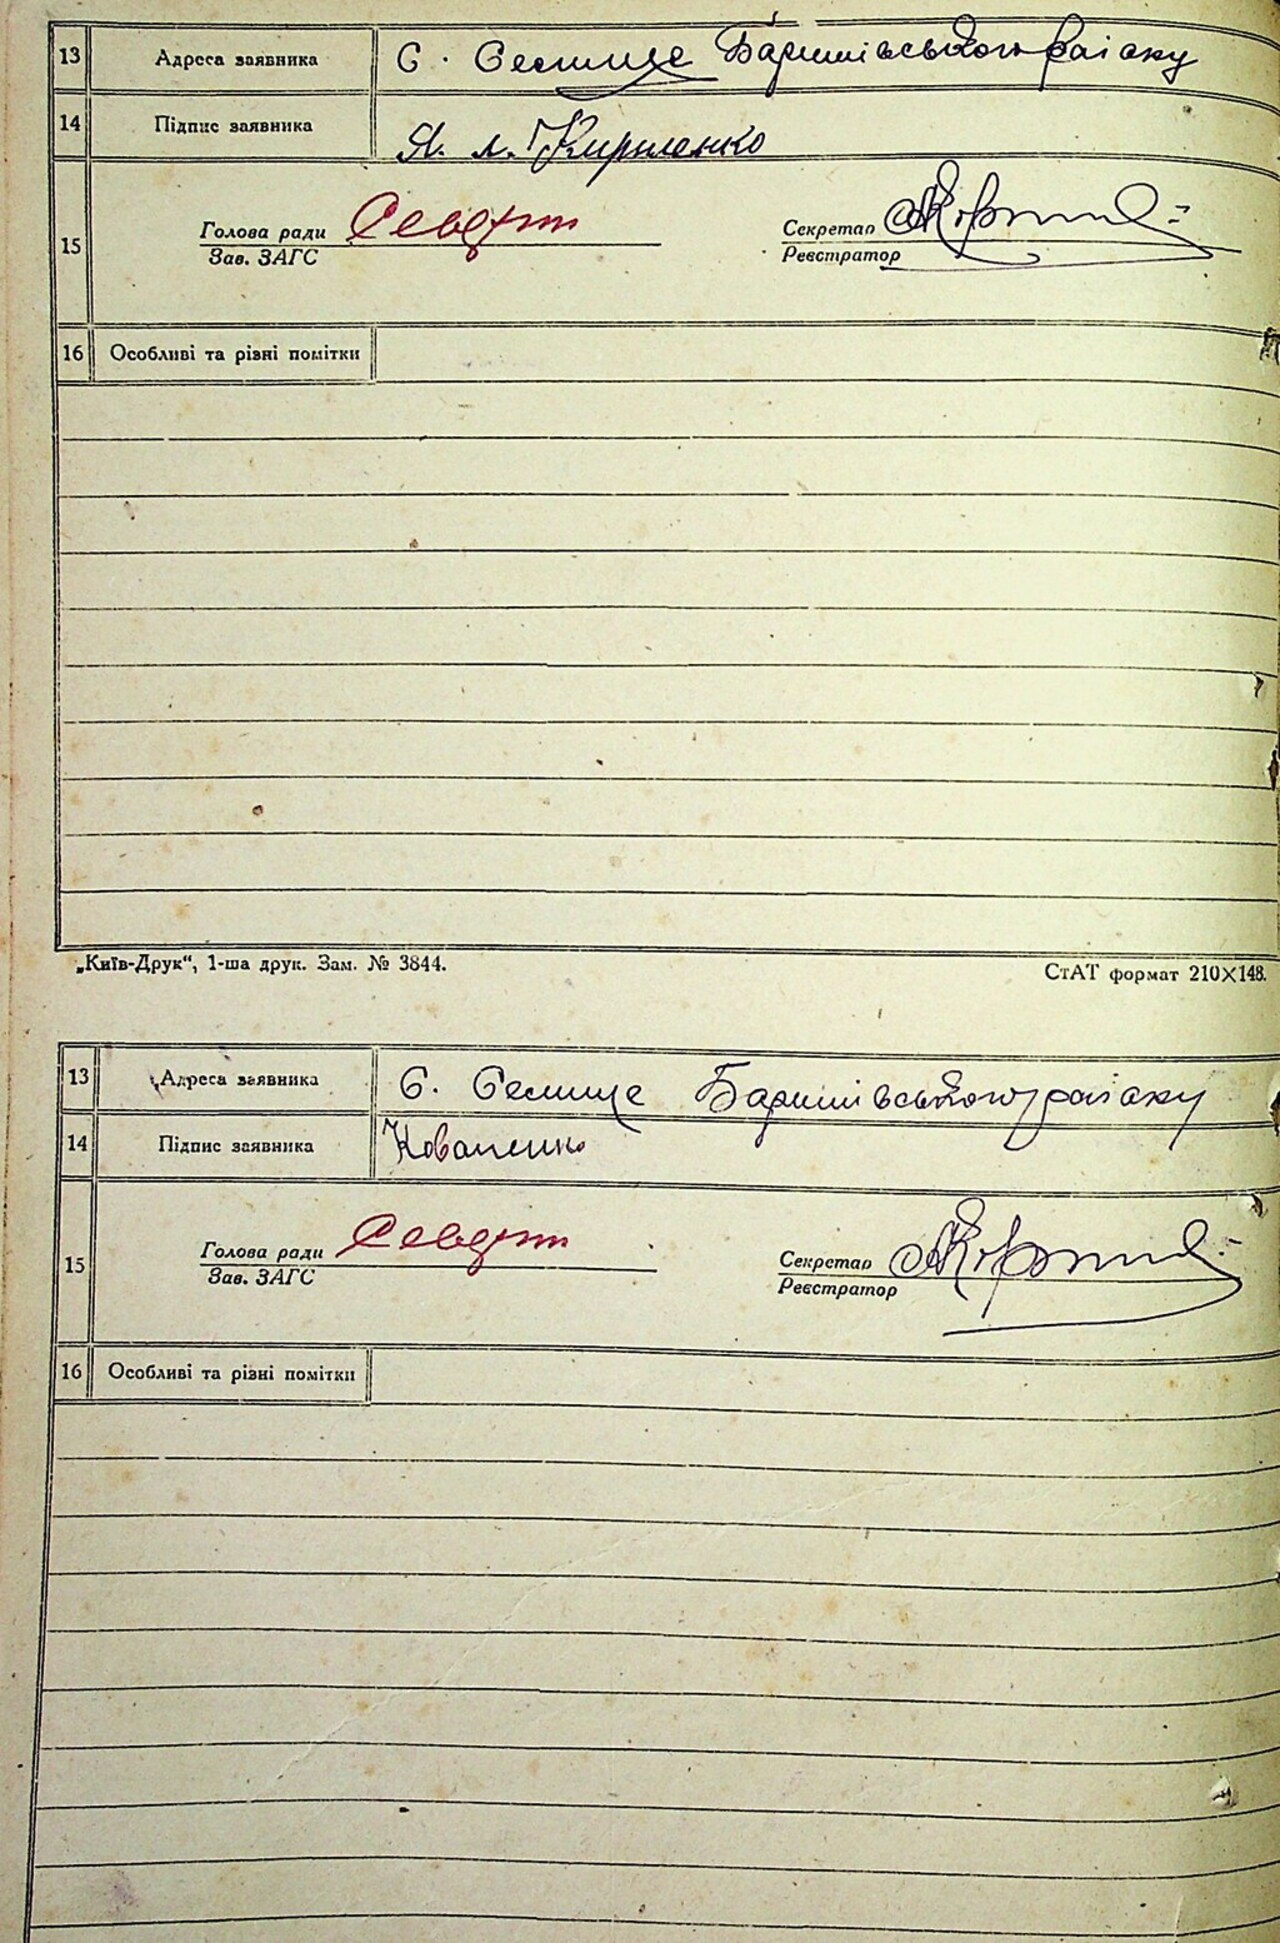 13 Адреса заявника С. Селище Баришівського району
14 Підпис заявника Я. л. Кириленко
15 Голова ради Секретар
Зав. ЗАГС Реєстратор
16 Особливі та різні помітки
„Київ-Друк“, 1-ша друк. Зам. № 3844. СтАТ формат 210×148.
13 Адреса заявника С. Селище Баришівського району
14 Підпис заявника Коваленко
15 Голова ради Секретар
Зав. ЗАГС Реєстратор
16 Особливі та різні помітки